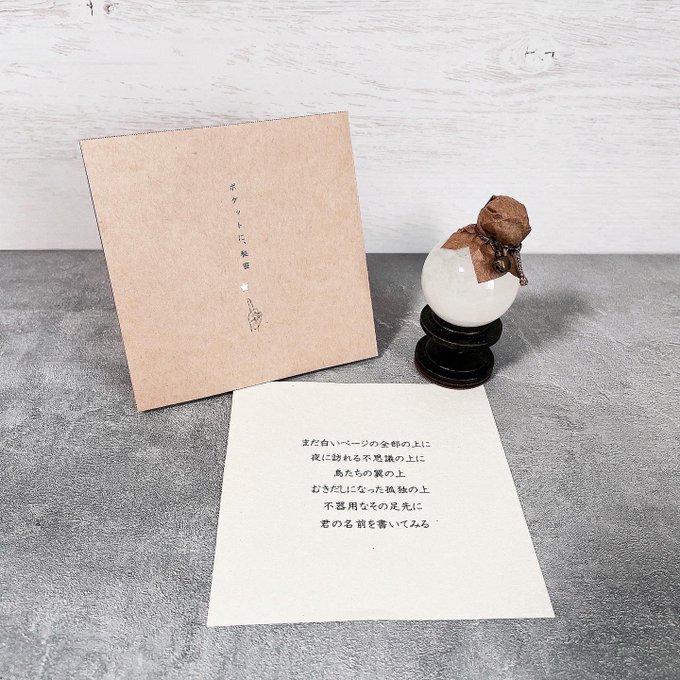 ポケットに、秘密
まだ白いページの全部の上に
夜に訪れる不思議の上に
鳥たちの翼の上
むきだしになった孤独の上
不器用なその足先に
君の名前を書いてみる